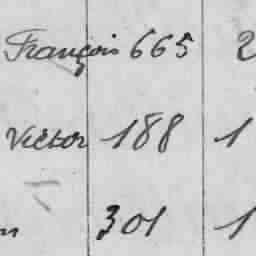 François 665 2
Victor 188 1
301 1